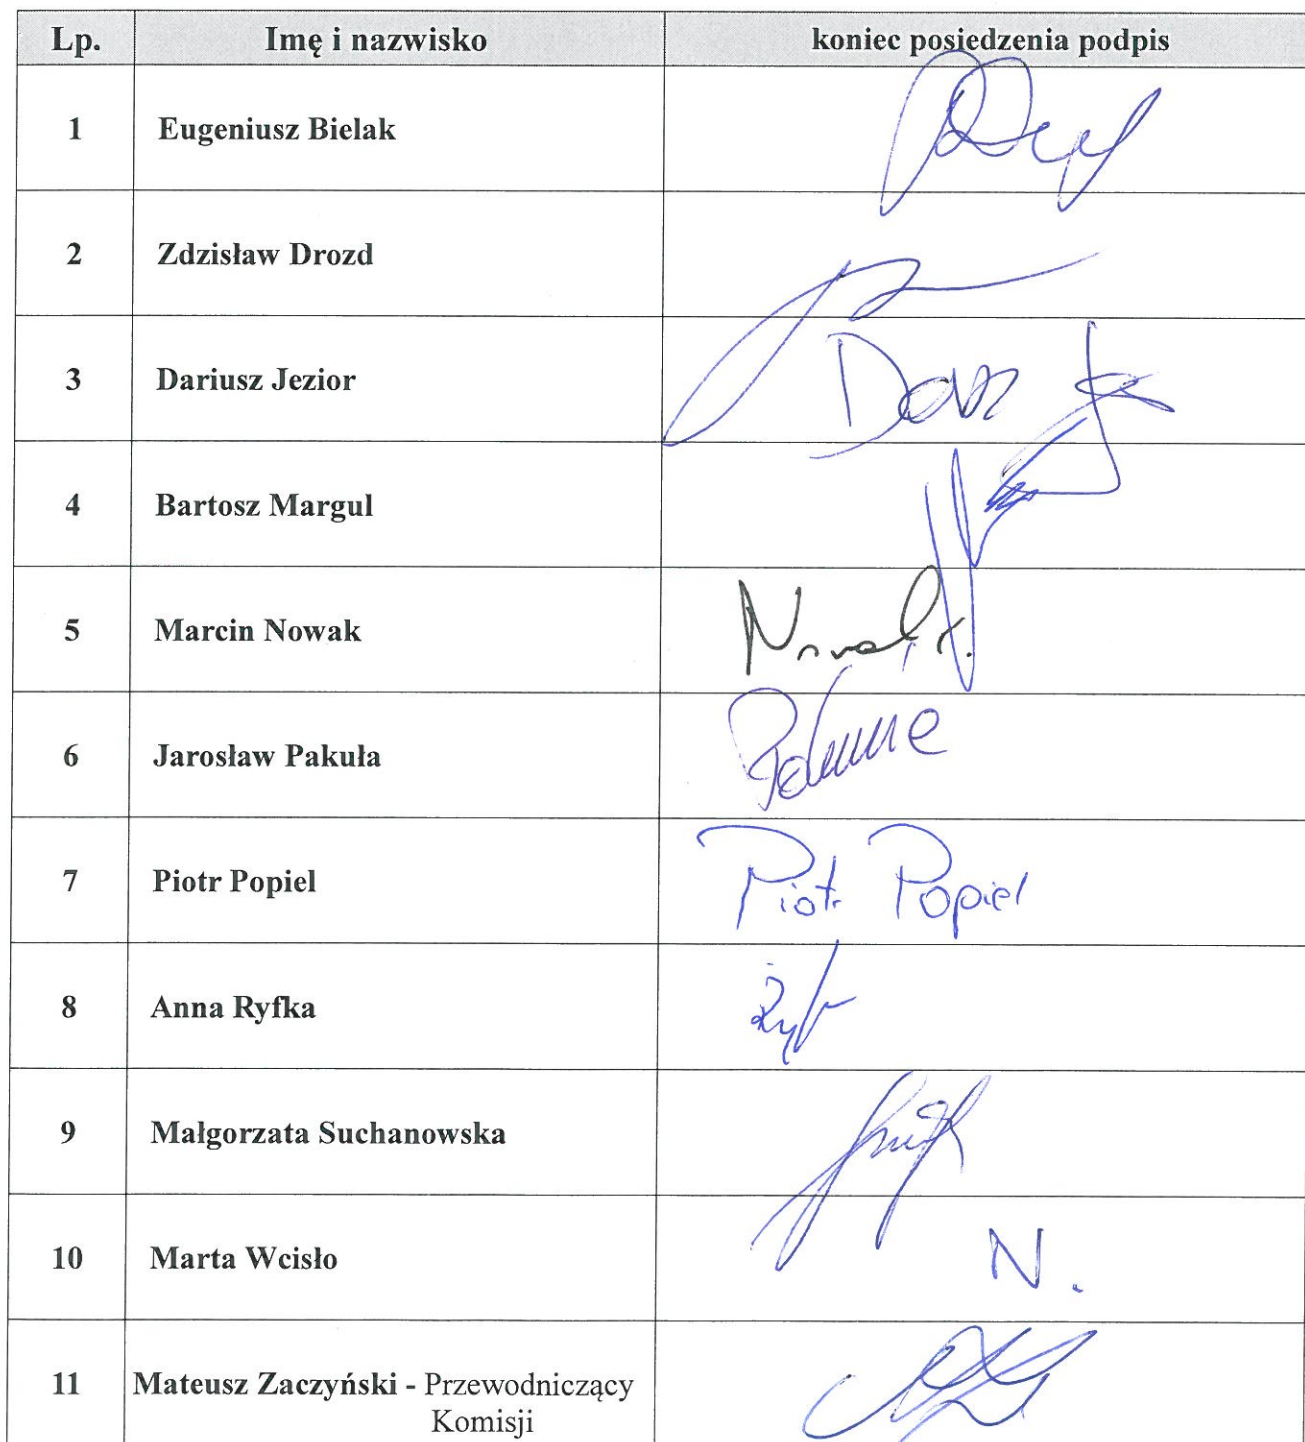 Lp. Imę i nazwisko koniec posiedzenia podpis
1 Eugeniusz Bielak
2 Zdzisław Drozd
3 Dariusz Jezior
4 Bartosz Margul
5 Marcin Nowak Nowak
6 Jarosław Pakuła
7 Piotr Popiel Piotr Popiel
8 Anna Ryfka
9 Małgorzata Suchanowska
10 Marta Wcisło N.
11 Mateusz Zaczyński - Przewodniczący
Komisji